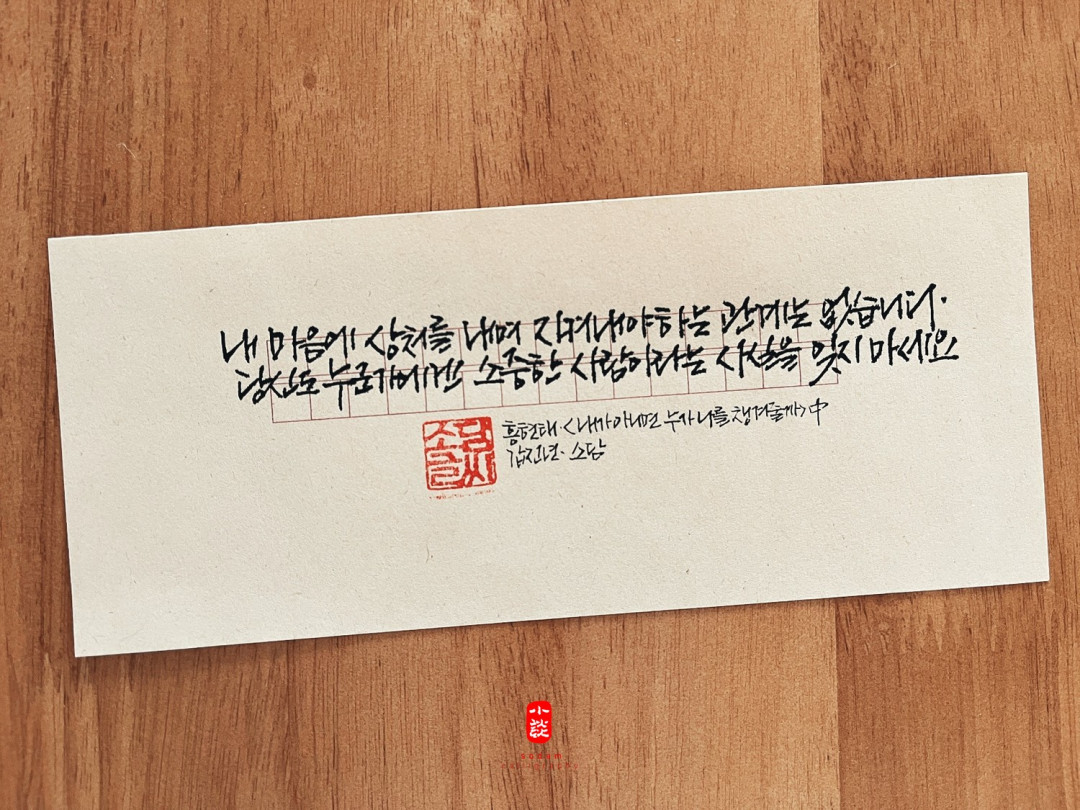 내 마음에 상처를 내며 지켜내야하는 관계는 없습니다.
당신도 누군가에겐 소중한 사람이라는 사실을 잊지 마세요
홍현태·<내가아니면 누가나를챙겨줄까>中
갑진년·소담
소담
글씨
小談